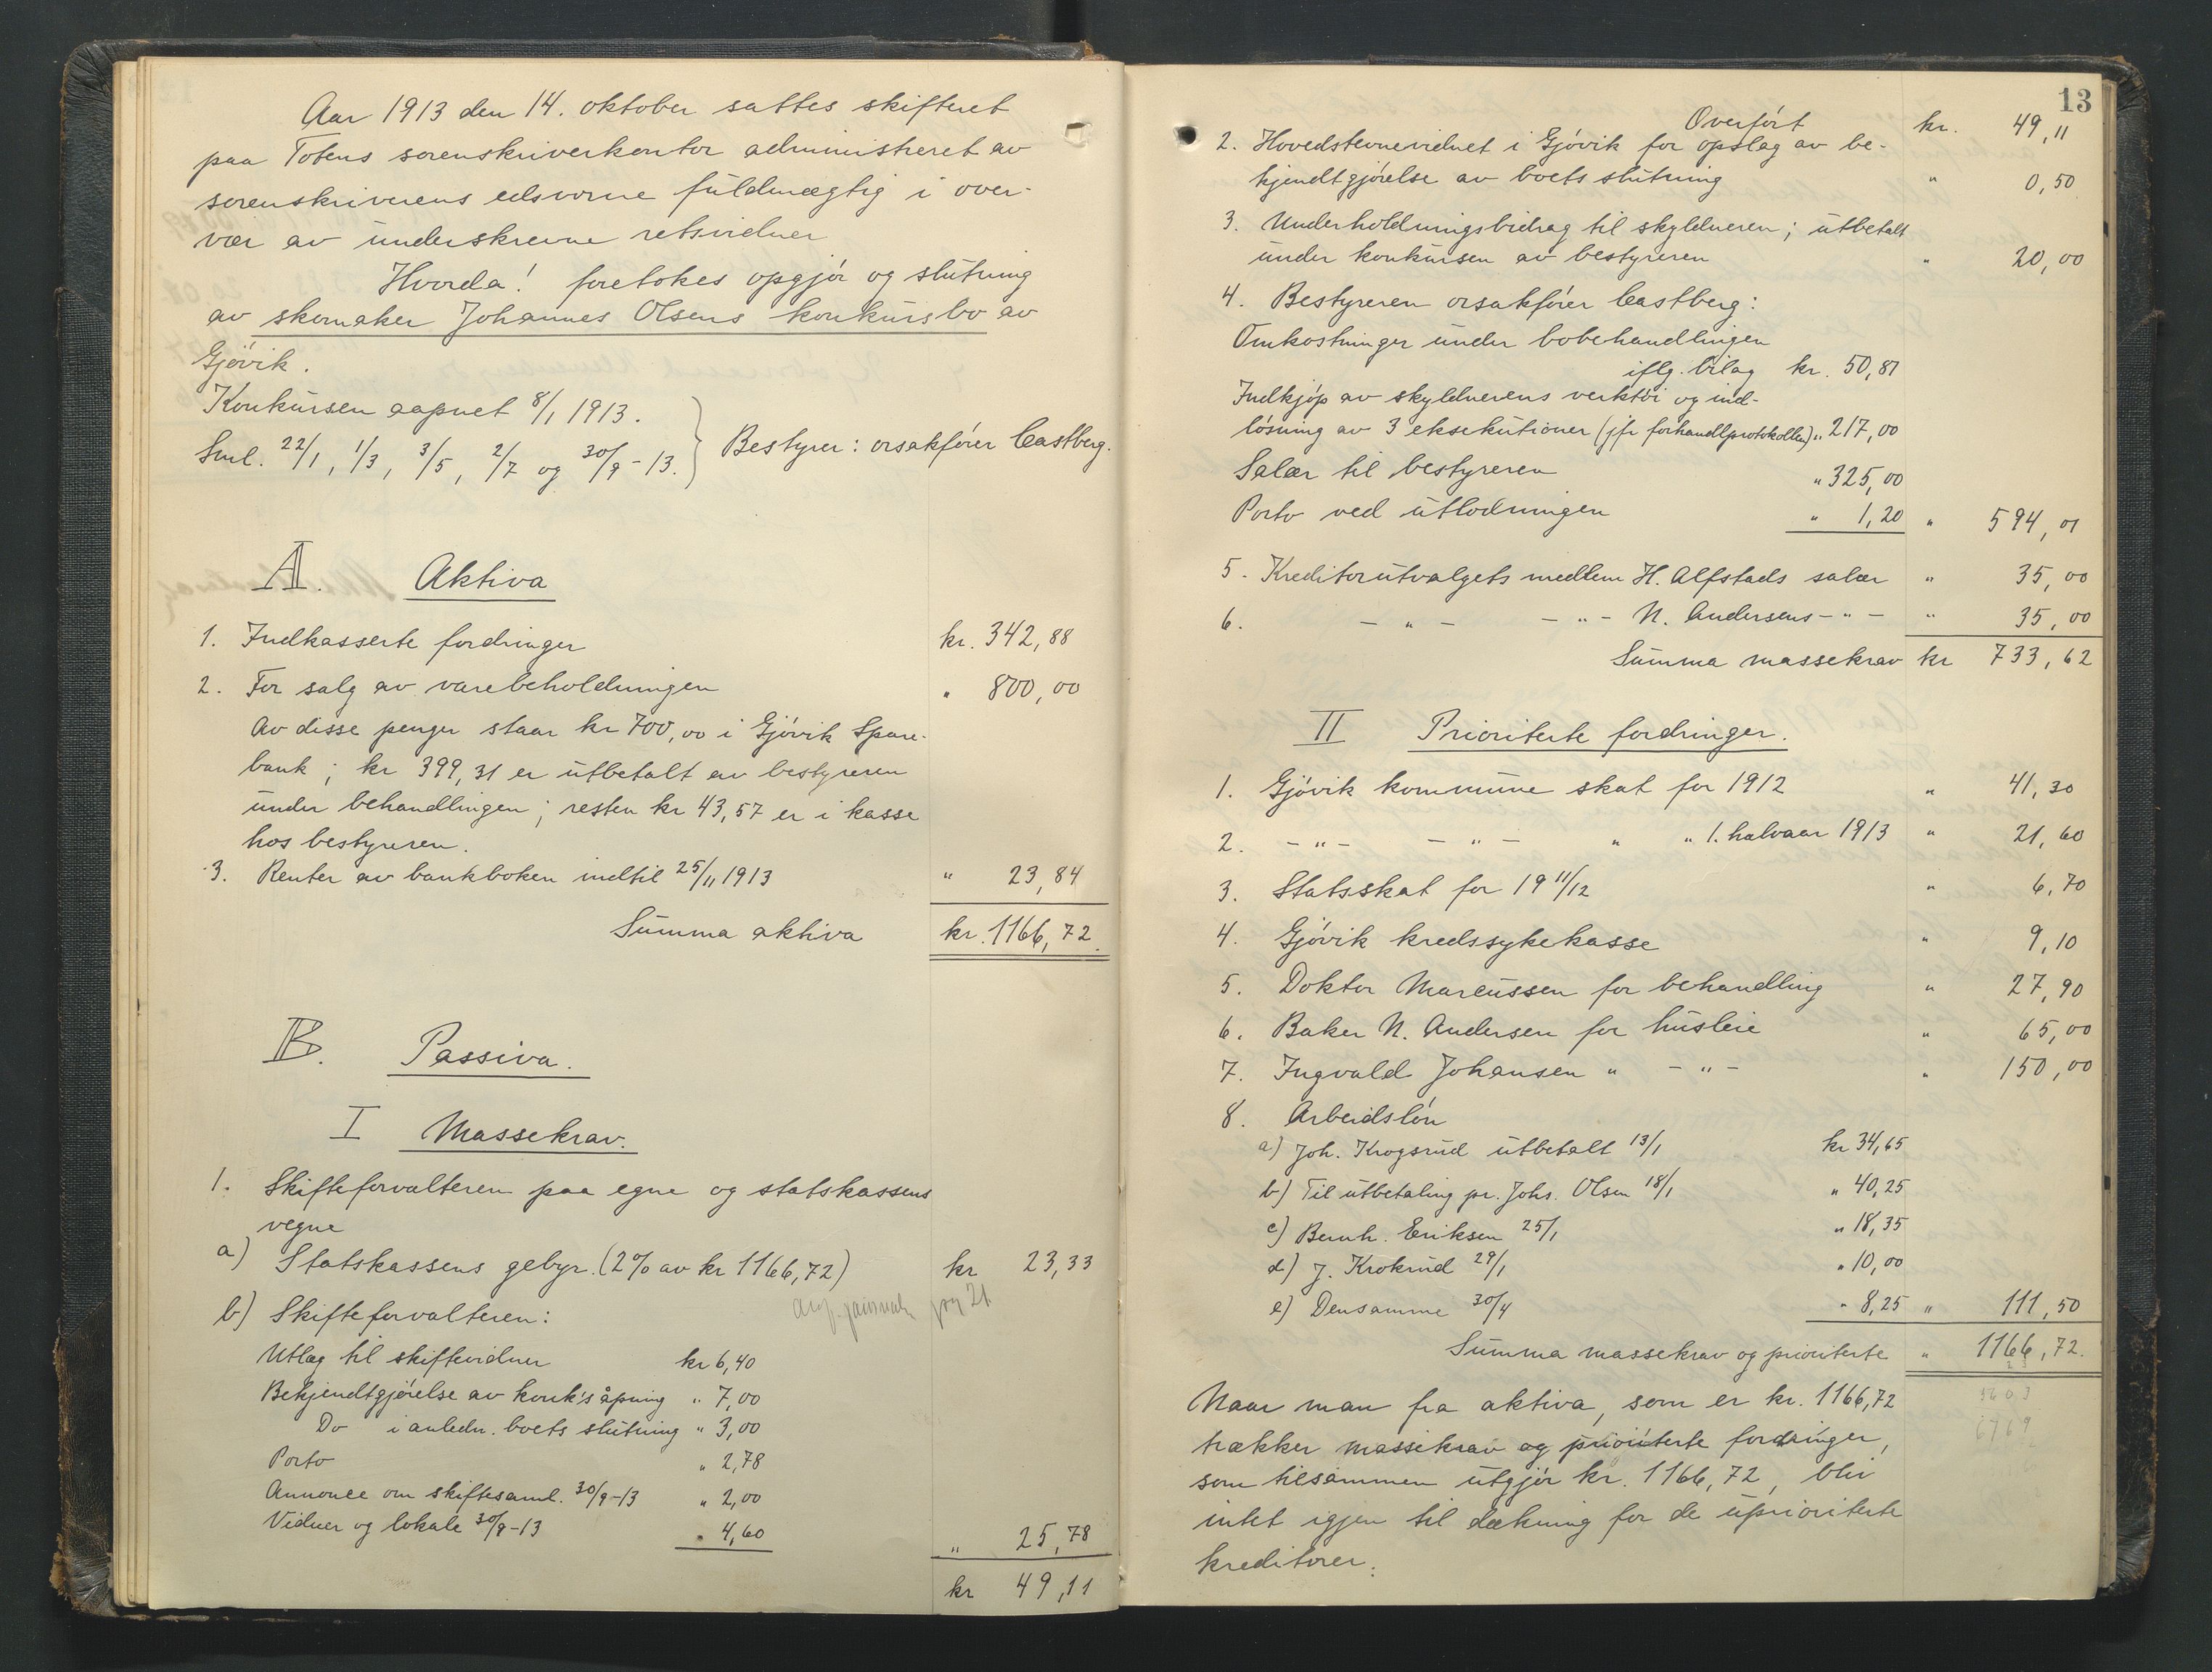 Aar 1913 den 14. oktober sattes skifteret
paa Totens sorenskriverkontor administreret av
sorenskriverens edsvorne fuldmægtig i over-
vær av underskrevne retsvidner
Hvorda! foretokes opgjør og slutning
av skomaker Johannes Olsens konkursbo av
Gjøvik.
Konkursen aapnet 8/1 1913.
Sml. 22/1, 1/3, 3/5, 2/7 og 30/9-13. } Bestyrer: orsakfører Castberg.
A. Aktiva
1. Indkasserte fordringer kr. 342,88
2. For salg av varebeholdningen " 800,00
Av disse penger staar kr 700,00 i Gjøvik Spare-
bank; kr 399,31 er utbetalt av bestyreren
under behandlingen; resten kr 43,57 er i kasse
hos bestyreren.
3. Renter av bankboken indtil 25/11 1913 " 23,84
Summa aktiva kr. 1166,72.
B. Passiva.
I Massekrav.
1. Skifteforvalteren paa egne og statskassens
vegne
a) Statskassens gebyr. (2% av kr 1166,72) kr 23,33
b) Skifteforvalteren:
Utlæg til skiftevidner kr 6,40
Bekjendtgjørelse av konk's åpning " 7,00
Do i anledn. boets slutning " 3,00
Porto " 2,78
Annonce om skiftesaml. 30/9-13 " 2,00
Vidner og lokale 30/9-13 " 4,60
" 25,78
kr 49,11
13
Overført kr. 49,11
2. Hovedstevnevidnet i Gjøvik for opslag av be-
kjendtgjørelse av boets slutning " 0,50
3. Underholdningsbidrag til skyldneren; utbetalt
under konkursen av bestyreren " 20,00
4. Bestyreren orsakfører Castberg:
Omkostninger under bobehandlingen
iflg. bilag kr. 50,81
Indkjøp av skyldnerens verktøi og ind-
løsning av 3 eksekutioner (jfr forhandlprotokollen) " 217,00
Salær til bestyreren " 325,00
Porto ved utlodningen " 1,20 " 594,01
5. Kreditorutvalgets medlem H. Alfstads salær " 35,00
6. - " - - " - N. Andersens - " - " 35,00
Summa massekrav kr 733,62
II Prioriterte fordringer.
1. Gjøvik kommune skat for 1912 " 41,30
2. - " - - " - " " 1. halvaar 1913 " 21,60
3. Statsskat for 19 11/12 " 6,70
4. Gjøvik kredssykekasse " 9,10
5. Doktor Marcussen for behandling " 27,90
6. Baker N. Andersen for husleie " 65,00
7. Ingvald Johansen " - " - " 150,00
8. Arbeidsløn
a) Joh. Krogsrud utbetalt 13/1 kr 34,65
b) Til utbetaling pr. Johs. Olsen 18/1 " 40,25
c) Bernh. Eriksen 25/1 " 18,35
d) J. Krokrud 29/1 " 10,00
e) Densamme 30/4 " 8,25 " 111,50
Summa massekrav og prioriterte " 1166,72.
Naar man fra aktiva, som er kr. 1166,72
trækker massekrav og prioriterte fordringer,
som tilsammen utgjør kr. 1166,72, bliv
intet igjen til dækning for de uprioriterte
kreditorer.